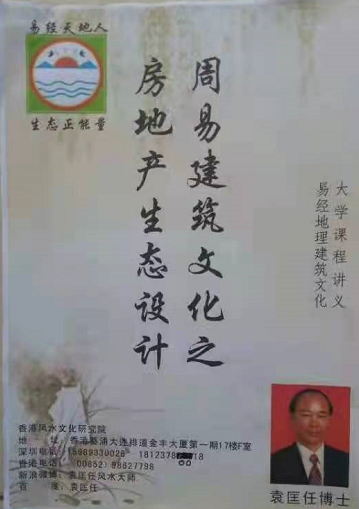 易经天地人
生态正能量
周易建筑文化之
房地产生态设计
大学课程讲义
易经地理建筑文化
香港风水文化研究院
地 址：香港葵涌大连排道金丰大厦第一期17楼F室
深圳电话：15989330028
香港电话：(00852) 98627798
新浪微博：袁匡任风水大师
袁匡任
袁匡任博士